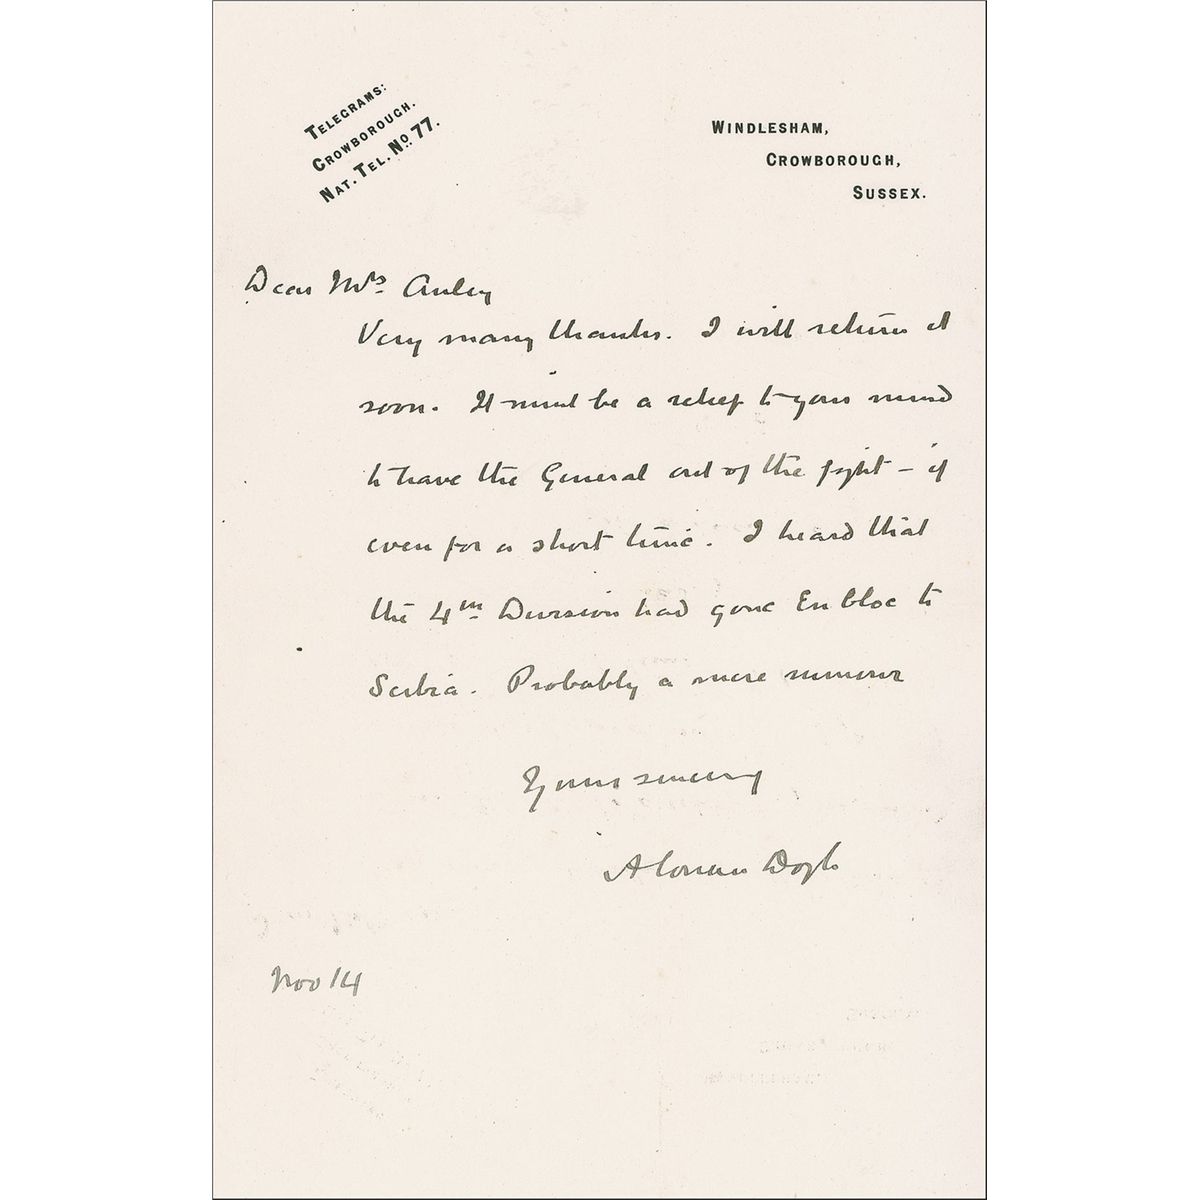 TELEGRAMS:
CROWBOROUGH.
NAT. TEL. No. 77.
WINDLESHAM,
CROWBOROUGH,
SUSSEX.
Dear Mrs
Very many thanks. I will return it
soon. It must be a relief to your mind
to have the General out of the fight – if
even for a short time. I heard that
the 4th Division had gone En bloc to
Serbia. Probably a mere rumour
Yours sincerely
A Conan Doyle
Nov 14